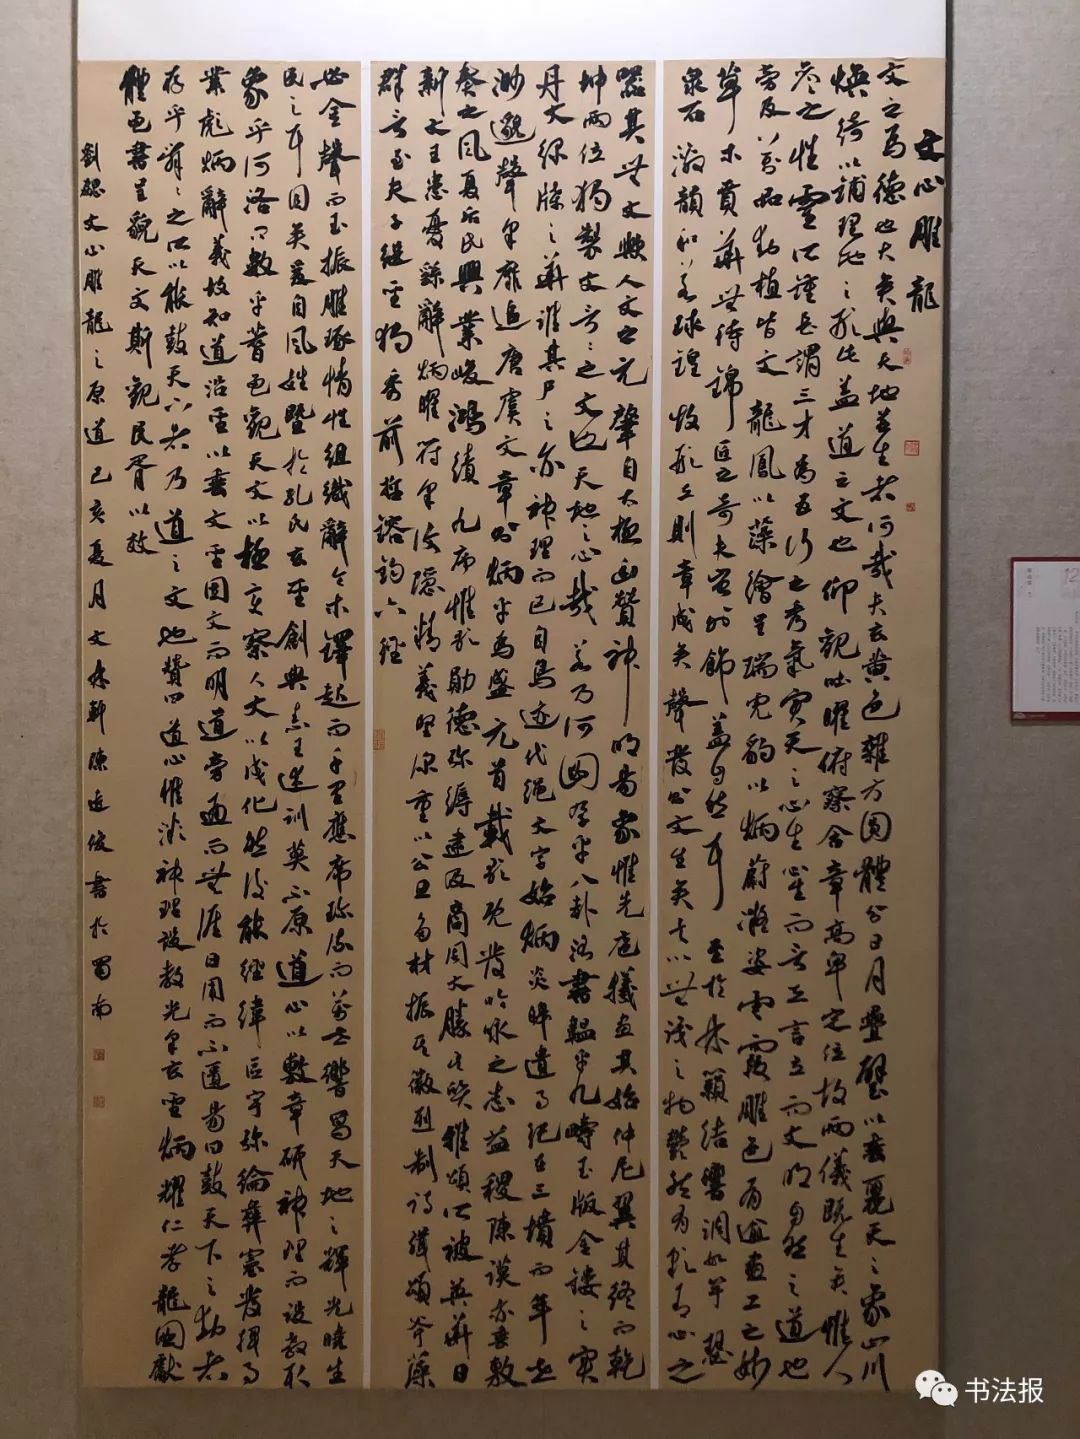 文心雕龍
文之為德也大矣與天地並生者何哉夫玄黃色雜方圓體分日月疊璧以垂麗天之象山川
煥綺以鋪理地之形此蓋道之文也仰觀吐曜俯察含章高卑定位故兩儀既生矣惟人
參之性靈所鍾是謂三才為五行之秀氣實天之心生心生而言立言立而文明自然之道也
旁及萬品動植皆文龍鳳以藻繪呈瑞虎豹以炳蔚凝姿雲霞雕色有逾畫工之妙
草木賁華無待錦匠之奇夫豈外飾蓋自然耳至於林籟結響調如竽瑟
泉石激韻和若球鍠故形立則章成矣聲發則文生矣夫以無識之物鬱然有彩有心之
器其無文歟人文之元肇自太極幽贊神明易象惟先庖犧畫其始仲尼翼其終而乾
坤兩位獨製文言言之文也天地之心哉若乃河圖孕乎八卦洛書韞乎九疇玉版金鏤之實
丹文綠牒之華誰其尸之亦神理而已自鳥迹代繩文字始炳炎皞遺事紀在三墳而年世
渺邈聲采靡追唐虞文章則炳乎為盛元首載歌既發吟詠之志益稷陳謨亦垂敷
奏之風夏后氏興業峻鴻績九序惟歌勛德彌縟逮及商周文勝其質雅頌所被英華日
新文王患憂繇辭炳曜符采複隱精義堅深重以公旦多材振其徽烈制詩緝頌斧藻
群言至夫子繼聖獨秀前哲鎔鈞六經
必金聲而玉振雕琢情性組織辭令木鐸起而千里應席珍流而萬世響寫天地之輝光曉生
民之耳目矣爰自風姓暨於孔氏玄聖創典素王述訓莫不原道心以敷章研神理而設教取
象乎河洛問數乎蓍龜觀天文以極變察人文以成化然後能經緯區宇彌綸彝憲發揮事
業彪炳辭義故知道沿聖以垂文聖因文而明道旁通而無涯日用而不匱易曰鼓天下之動者
存乎辭辭之所以能鼓天下者乃道之文也贊曰道心惟微神理設教光采玄聖炳耀仁孝龍圖獻
體龜書呈貌天文斯觀民胥以效
劉勰文心雕龍之原道己亥夏月文林軒陳遠俊書於蜀南
12
书法报